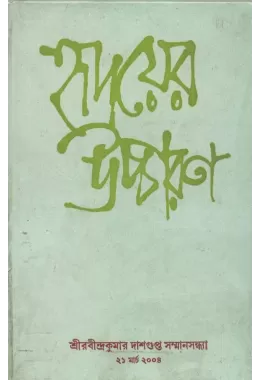 হৃদয়ের
উচ্চারণ
শ্রীরবীন্দ্রকুমার দাশগুপ্ত সম্মানসন্ধ্যা
২১ মার্চ ২০০৪